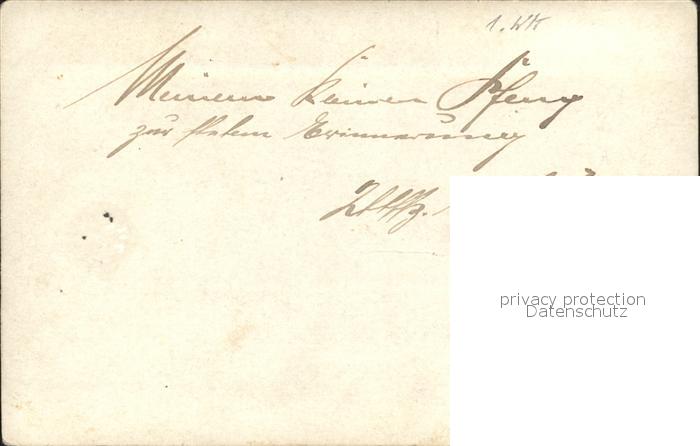 1. WK
Meinem kleinen
zur steten Erinnerung
privacy protection
Datenschutz